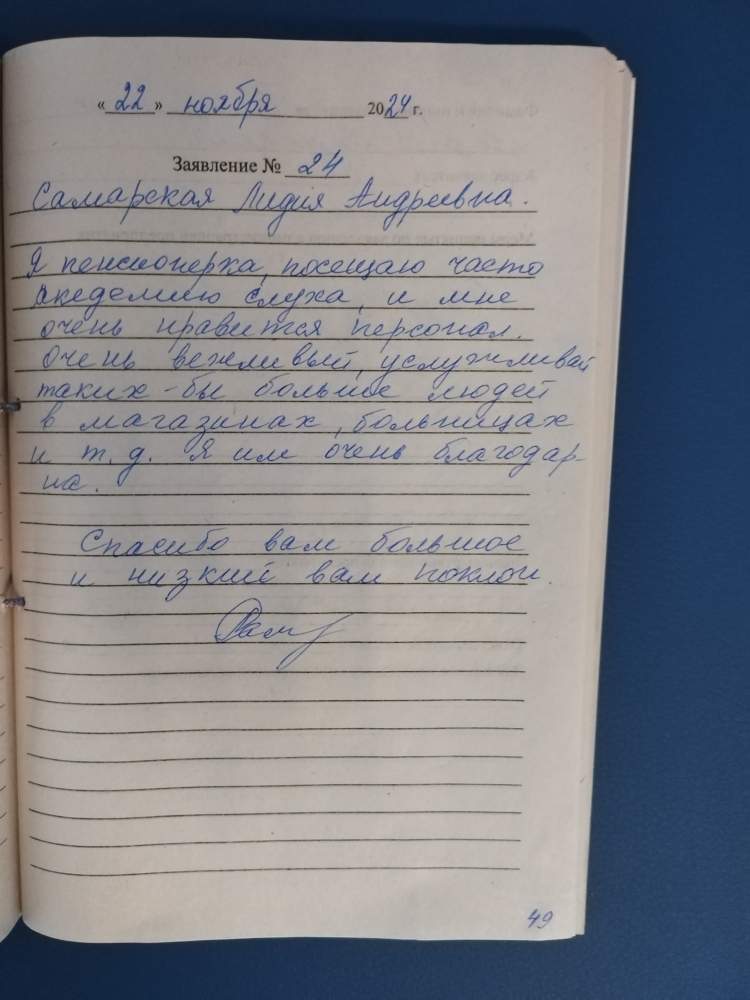 « 22 » ноября 2024 г.
Заявление № 24
Самарская Лидия Андреевна.
Я пенсионерка, посещаю часто
Акедемию слуха, и мне
очень нравится персонал.
Очень вежливый, услужливай
таких-бы больше людей
в магазинах, больницах
и т.д. Я им очень благодар-
на.
Спасибо вам большое
и низкий вам поклон.
49